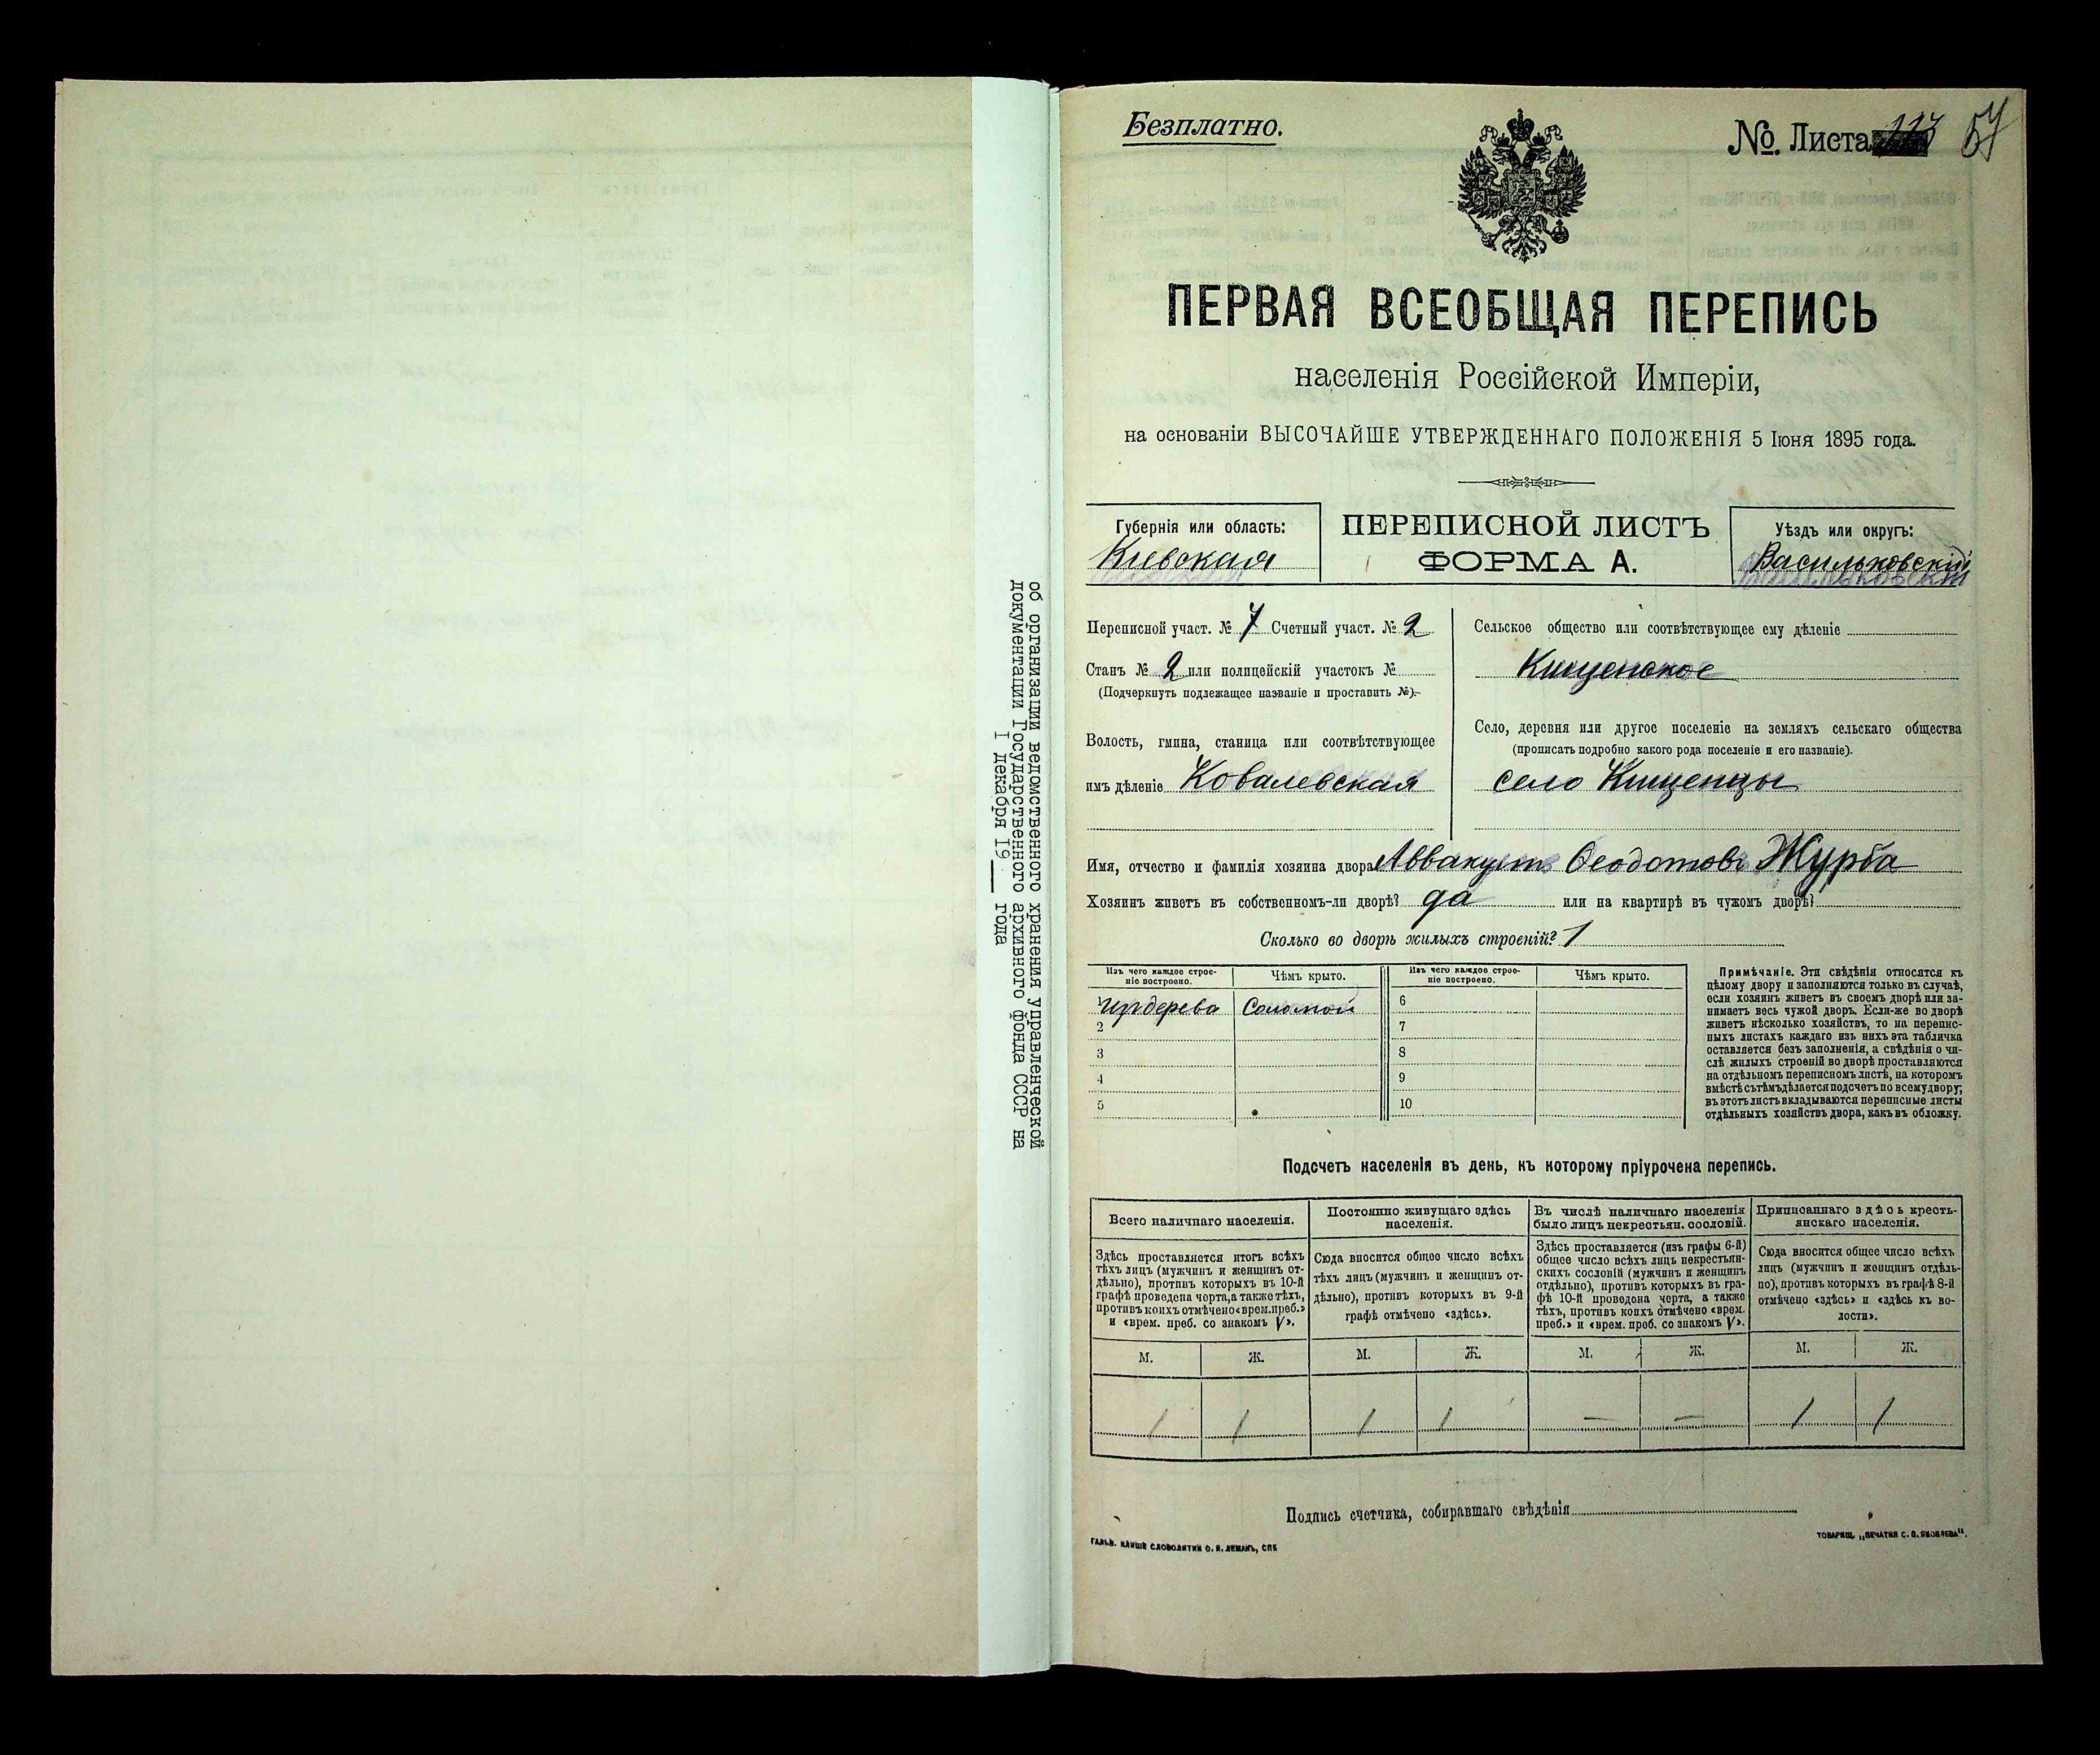 об организации ведомственного хранения управленческой
документации Государственного архивного фонда СССР на
I декабря 19___ года
Безплатно.
№. Листа 113 57
ПЕРВАЯ ВСЕОБЩАЯ ПЕРЕПИСЬ
населенія Россійской Имперіи,
на основаніи ВЫСОЧАЙШЕ УТВЕРЖДЕННАГО ПОЛОЖЕНІЯ 5 Іюня 1895 года.
Губернія или область:
Кіевская
ПЕРЕПИСНОЙ ЛИСТЪ
ФОРМА А.
Уѣздъ или округъ:
Васильковскій
Переписной участ. № 7 Счетный участ. № 2
Станъ № 2 или полицейскій участокъ №
(Подчеркнуть подлежащее названіе и проставить №).
Волость, гмина, станица или соотвѣтствующее
имъ дѣленіе Ковалевская
Сельское общество или соотвѣтствующее ему дѣленіе
Кищенское
Село, деревня или другое поселеніе на земляхъ сельскаго общества
(прописать подробно какого рода поселеніе и его названіе).
село Кищенцы
Имя, отчество и фамилія хозяина двора Аввакумъ Ѳеодотовъ Журба
Хозяинъ живетъ въ собственномъ-ли дворѣ? да или на квартирѣ въ чужомъ дворѣ?
Сколько во дворѣ жилыхъ строеній? 1
Изъ чего каждое строе-
ніе построено.
Чѣмъ крыто.
Изъ чего каждое строе-
ніе построено.
Чѣмъ крыто.
1 Изъ дерева Соломой 6
2 7
3 8
4 9
5 10
Примѣчаніе. Эти свѣдѣнія относятся къ
цѣлому двору и заполняются только въ случаѣ,
если хозяинъ живетъ въ своемъ дворѣ или за-
нимаетъ весь чужой дворъ. Если-же во дворѣ
живетъ нѣсколько хозяйствъ, то на перепис-
ныхъ листахъ каждаго изъ нихъ эта табличка
оставляется безъ заполненія, а свѣдѣнія о чи-
слѣ жилыхъ строеній во дворѣ проставляются
на отдѣльномъ переписномъ листѣ, на которомъ
вмѣстѣ съ тѣмъ дѣлается подсчетъ по всему двору;
въ этотъ листъ вкладываются переписные листы
отдѣльныхъ хозяйствъ двора, какъ въ обложку.
Подсчетъ населенія въ день, къ которому пріурочена перепись.
Всего наличнаго населенія.
Постоянно живущаго здѣсь
населенія.
Въ числѣ наличнаго населенія
было лицъ некрестьян. сословій.
Приписаннаго здѣсь кресть-
янскаго населенія.
Здѣсь проставляется итогъ всѣхъ
тѣхъ лицъ (мужчинъ и женщинъ от-
дѣльно), противъ которыхъ въ 10-й
графѣ проведена черта, а также тѣхъ,
противъ коихъ отмѣчено «врем. преб.»
и «врем. преб. со знакомъ V».
Сюда вносится общее число всѣхъ
тѣхъ лицъ (мужчинъ и женщинъ от-
дѣльно), противъ которыхъ въ 9-й
графѣ отмѣчено «здѣсь».
Здѣсь проставляется (изъ графы 6-й)
общее число всѣхъ лицъ некрестьян-
скихъ сословій (мужчинъ и женщинъ
отдѣльно), противъ которыхъ въ гра-
фѣ 10-й проведена черта, а также
тѣхъ, противъ коихъ отмѣчено «врем.
преб.» и «врем. преб. со знакомъ V».
Сюда вносится общее число всѣхъ
лицъ (мужчинъ и женщинъ отдѣль-
но), противъ которыхъ въ графѣ 8-й
отмѣчено «здѣсь» и «здѣсь къ во-
лости».
М. Ж. М. Ж. М. Ж. М. Ж.
1 1 1 1 — — 1 1
Подпись счетчика, собиравшаго свѣдѣнія
ГАЛЬВ. КЛИШЕ СЛОВОЛИТНИ О. И. ЛЕМАНЪ, СПБ
ТОВАРИЩ. „ПЕЧАТНЯ С. П. ЯКОВЛЕВА“.